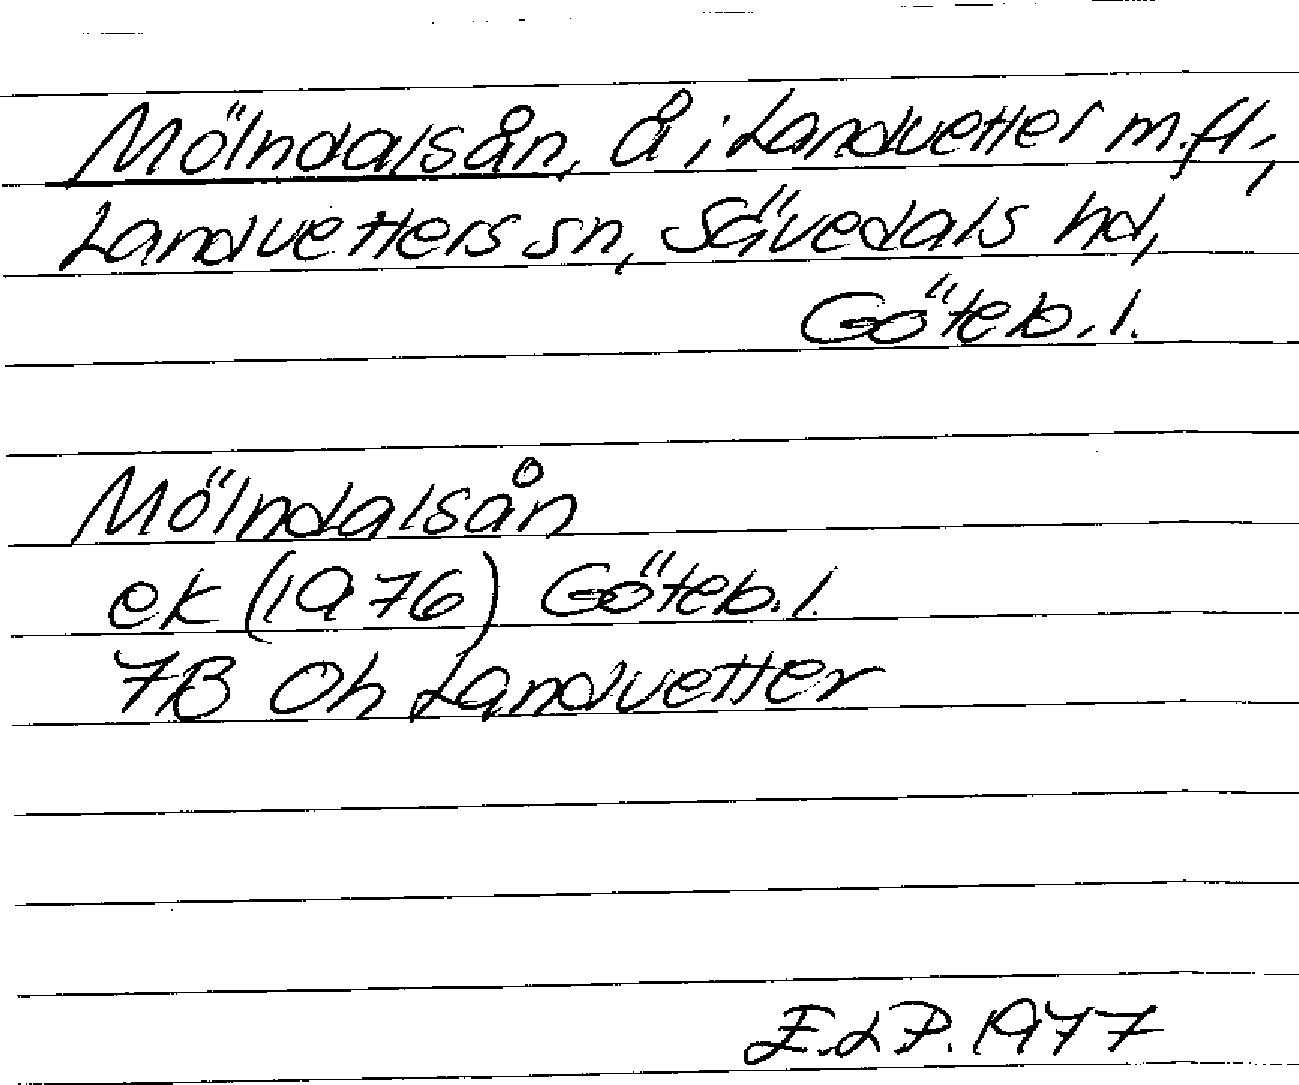 Mölndalsån, å i Landvetter m.fl.,
Landvetters sn, Sävedals hd,
Göteb. l.
Mölndalsån
ek (1976) Göteb. l.
7B Oh Landvetter
E.L.P. 1977